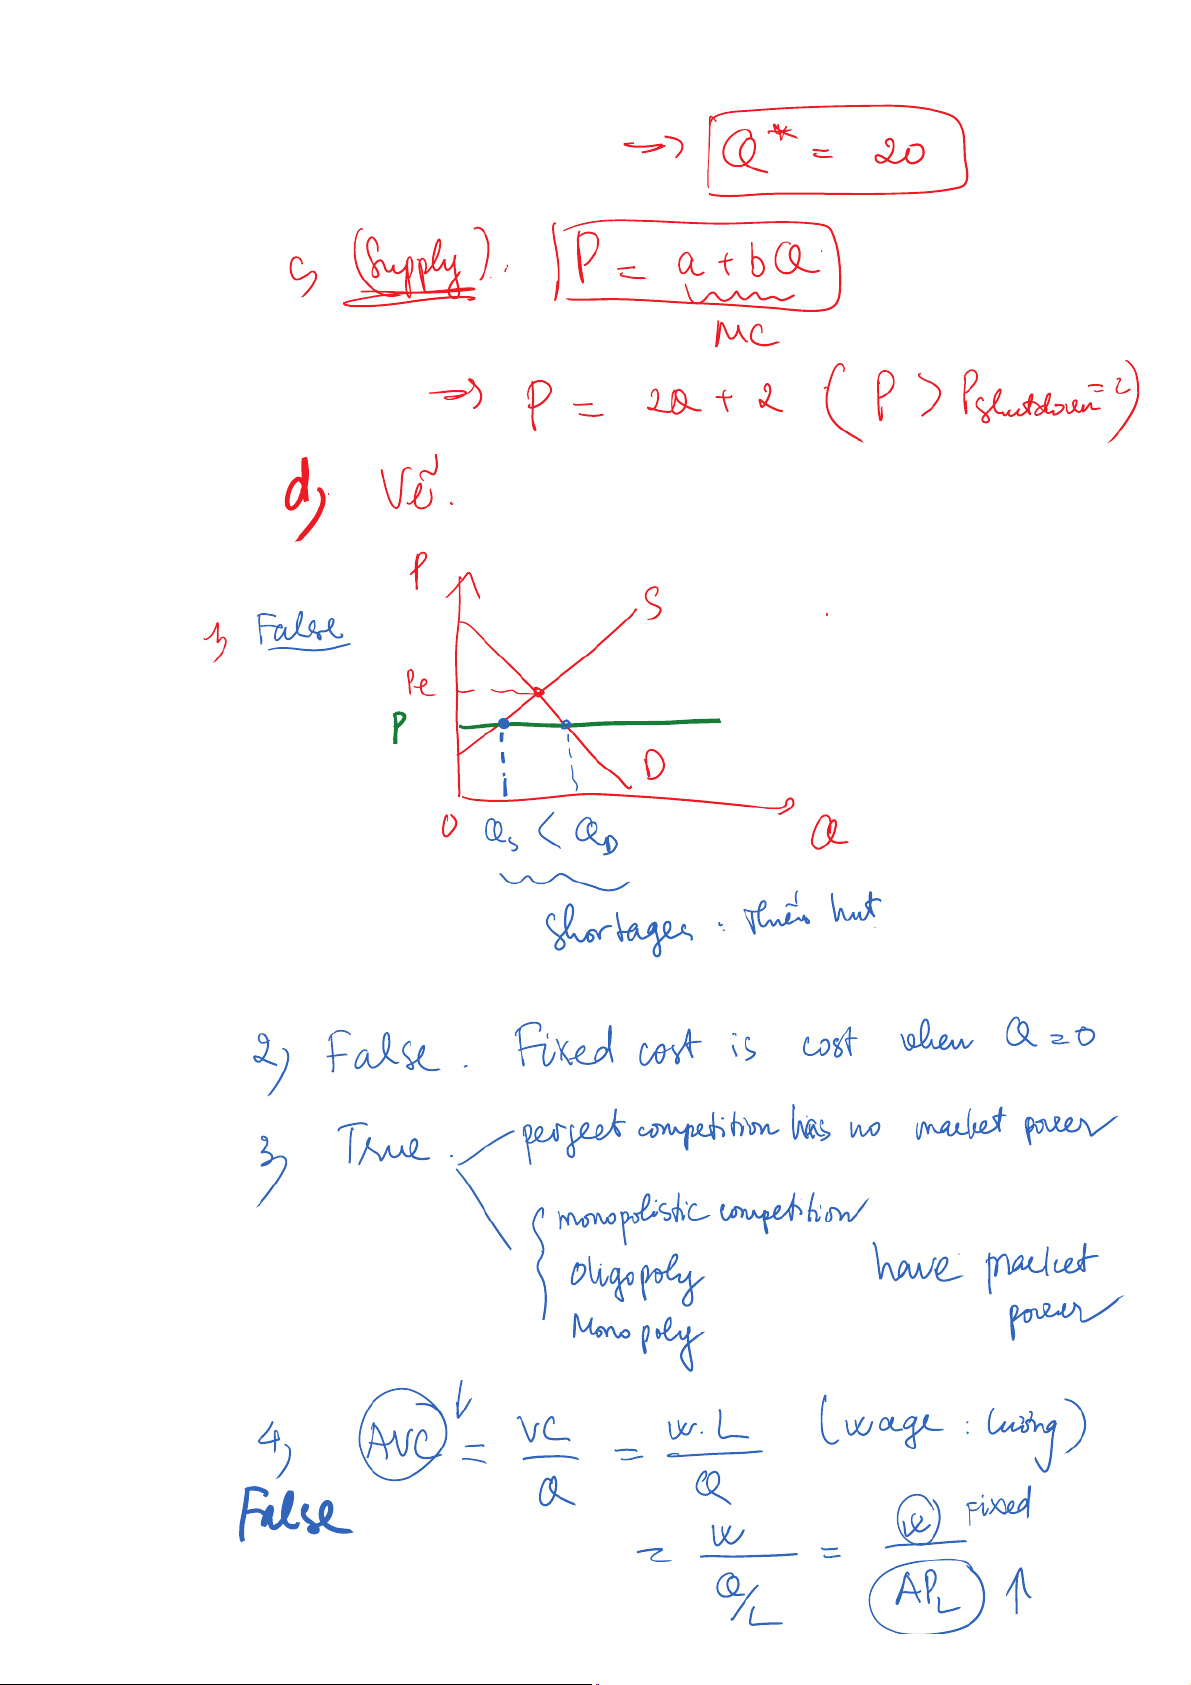 → Q* = 20
c, (Supply). P = a + bQ
MC
→ P = 2Q + 2 ( P > Pshutdown = 2 )
d, Vẽ.
P
S
1, False
Pe
P
D
0 Qs < QD Q
Shortages : Thiếu hụt
2, False. Fixed cost is cost when Q = 0
3, True. perfect competition has no market power
monopolistic competition
Oligopoly have market
Monopoly power
4, AVC ↓ = VC / Q = w.L / Q (wage : lương)
False = w / Q/L = w / APL ↑ Fixed